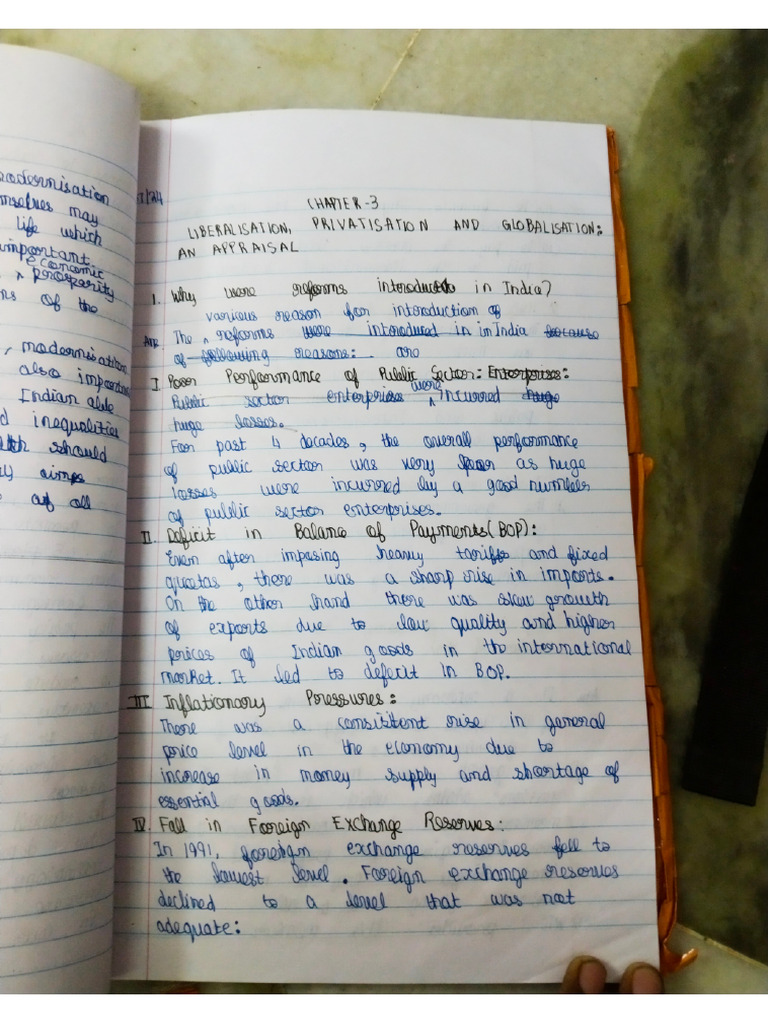 modernisation
mselves may
life which
important
economic
prosperity
ns of the
, modernisation
also importa
Indian able
d inequalities
should
aims
of all
7/24
CHAPTER-3
LIBERALISATION, PRIVATISATION AND GLOBALISATION:
AN APPRAISAL
1. Why were reforms introduced in India?
various reason for introduction of
Ans The reforms were introduced in in India because
of following reasons: are
I. Poor Performance of Public Sector: Enterprises:
were
Public sector enterprises incurred huge
huge losses.
For past 4 decades, the overall performance
of public sector was very poor as huge
losses were incurred by a good number
of public sector enterprises.
II. Deficit in Balance of Payments (BOP):
Even after imposing heavy tariffs and fixed
quotas, there was a sharp rise in imports.
On the other hand there was slow growth
of exports due to low quality and higher
prices of Indian goods in the international
market. It led to deficit in BOP.
III Inflationary Pressures:
There was a consistent rise in general
price level in the economy due to
increase in money supply and shortage of
essential goods.
IV. Fall in Foreign Exchange Reserves:
In 1991, foreign exchange reserves fell to
the lowest level. Foreign exchange reserves
declined to a level that was not
adequate: